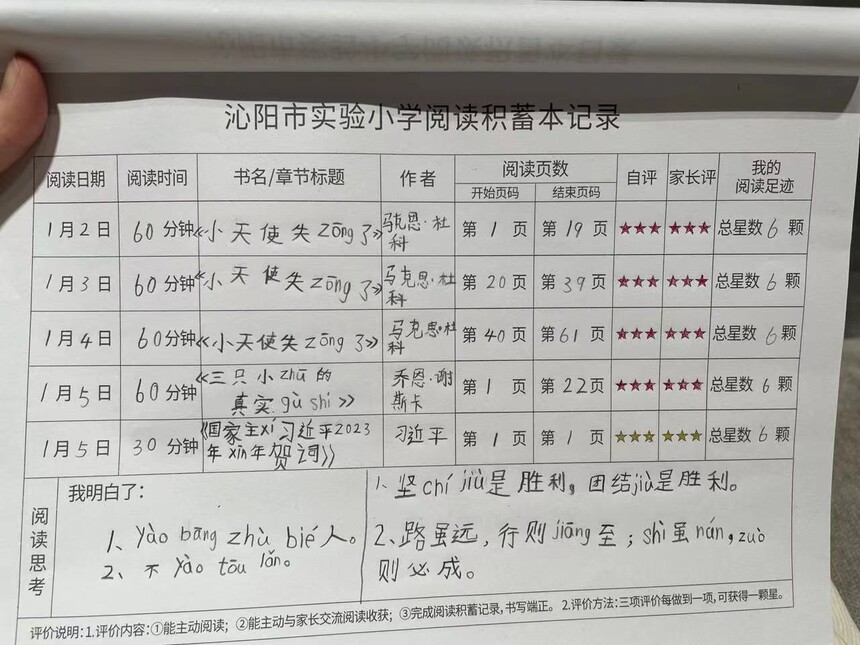 沁阳市实验小学阅读积蓄本记录
阅读日期 阅读时间 书名/章节标题 作者 阅读页数 自评 家长评 我的阅读足迹
开始页码 结束页码
1月2日 60分钟 《小天使失zōng了》 马克思·杜科 第1页 第19页 ★★★ ★★★ 总星数6颗
1月3日 60分钟 《小天使失zōng了》 马克思·杜科 第20页 第39页 ★★★ ★★★ 总星数6颗
1月4日 60分钟 《小天使失zōng了》 马克思·杜科 第40页 第61页 ★★★ ★★★ 总星数6颗
1月5日 60分钟 《三只小zhū的真实gù shi》 乔恩·谢斯卡 第1页 第22页 ★★★ ★★★ 总星数6颗
1月5日 30分钟 《国家主xí习近平2023年xīn年贺词》 习近平 第1页 第1页 ★★★ ★★★ 总星数6颗
阅读思考
我明白了：
1、yào bāng zhù bié人。
2、不yào tōu lǎn。
1、坚chí jiù是胜利，团结jiù是胜利。
2、路虽远，行则jiāng至；shì虽nán，zuò
则必成。
评价说明：1.评价内容：①能主动阅读；②能主动与家长交流阅读收获；③完成阅读积蓄记录，书写端正。 2.评价方法：三项评价每做到一项，可获得一颗星。